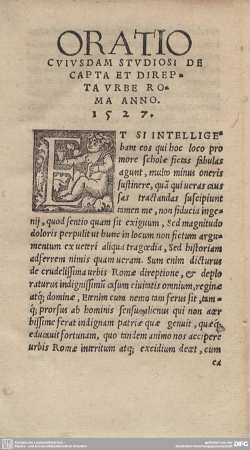 ORATIO
CVIVSDAM STVDIOSI DE
CAPTA ET DIREP-
TA VRBE RO-
MA ANNO.
1527.
ET SI INTELLIGE
bam eos qui hoc loco pro
more scholæ fictas fabulas
agunt, multo minus oneris
sustinere, quã qui veras cau
sas tractandas suscipiunt
tamen me, non fiducia inge-
nij, quod sentio quam sit exiguum, Sed magnitudo
doloris perpulit ut hunc in locum non fictam argu-
mentum ex vetere aliqua tragœdia, Sed historiam
adferrem nimis quam veram. Sum enim dicturus
de crudelissima urbis Romæ direptione, & deplo
raturus indignissimũ casum ciuitatis omnium, reginæ
atq; dominæ, Etenim cum nemo tam ferus sit, tam-
q; prorsus ab hominis sensu alienus qui non acer
bissime ferat indignam patriæ quæ genuit, quæq;
educauit fortunam, quo tandem animo nos accipere
urbis Romæ interitum atq; excidium decet, cum
ea